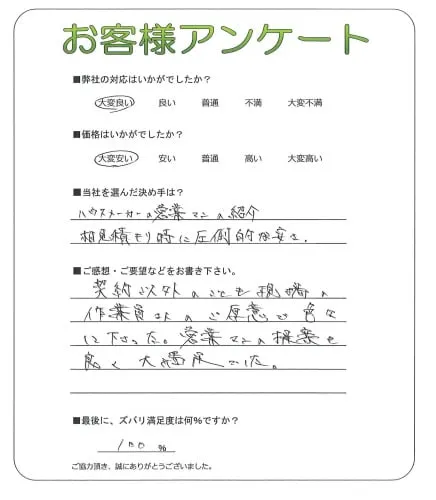 お客様アンケート
■弊社の対応はいかがでしたか?
大変良い 良い 普通 不満 大変不満
■価格はいかがでしたか?
大変安い 安い 普通 高い 大変高い
■当社を選んだ決め手は?
ハウスメーカーの営業マンの紹介
相見積もり時に圧倒的な安さ.
■ご感想・ご要望などをお書き下さい。
契約以外のことも現場の
作業員さんのご厚意で色々
に下さった。営業マンの提案も
良く大満足でした。
■最後に、ズバリ満足度は何%ですか?
100 %
ご協力頂き、誠にありがとうございました。